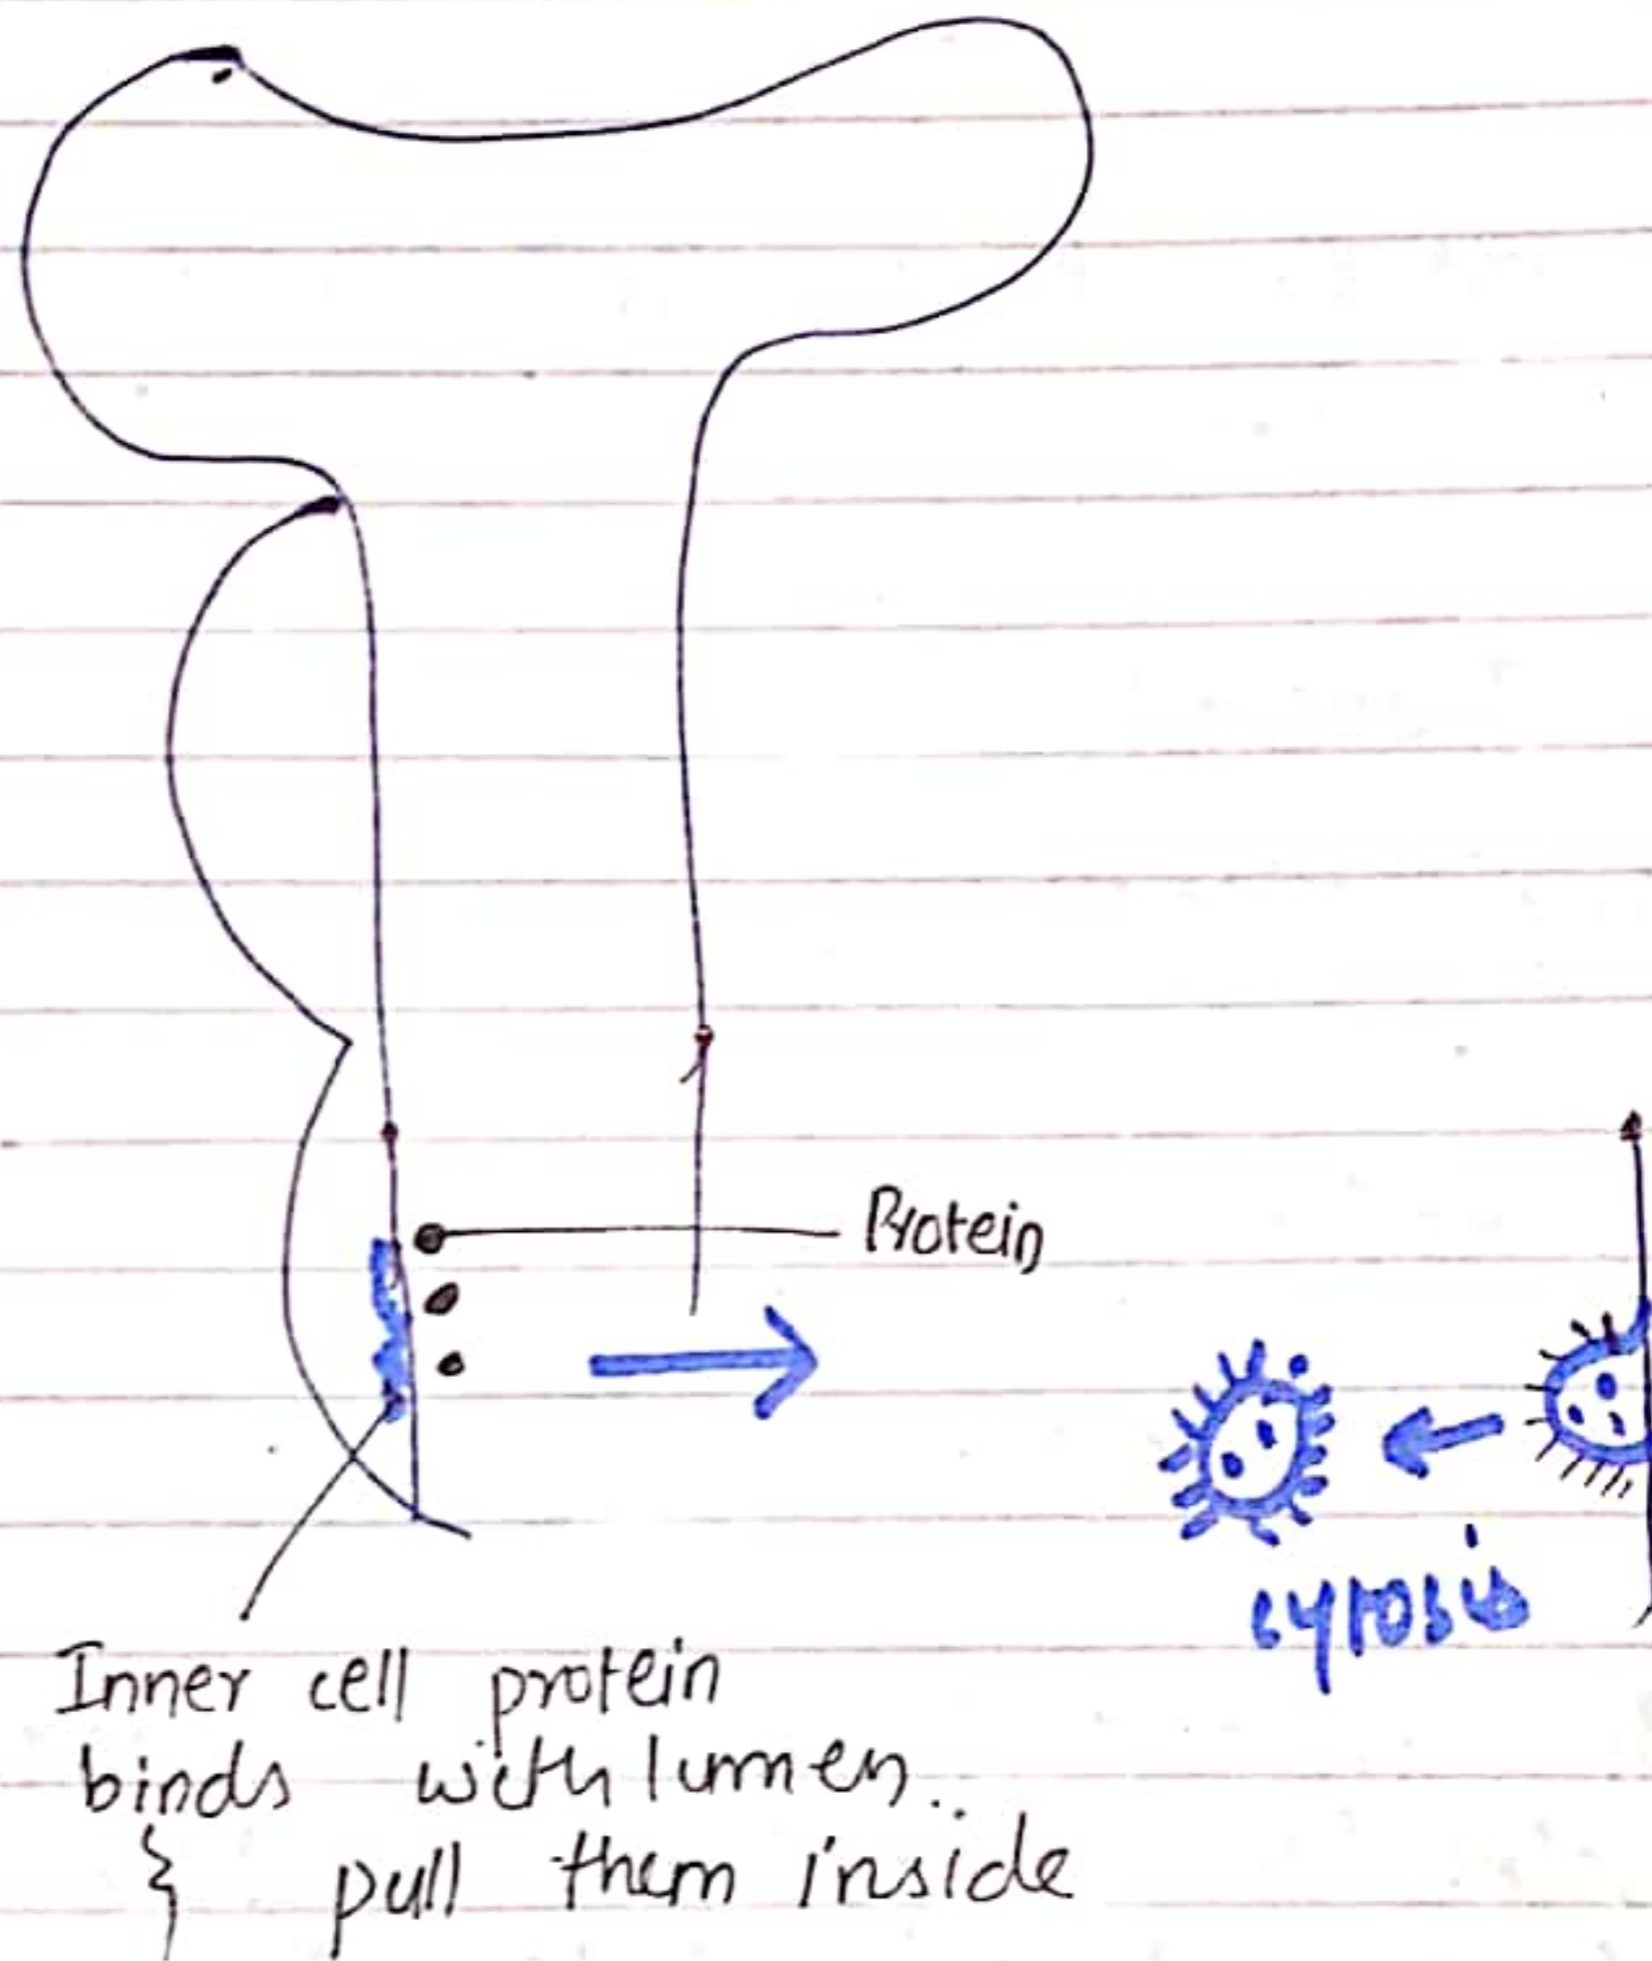 Protein
cytosis
Inner cell protein
binds with lumen..
} pull them inside